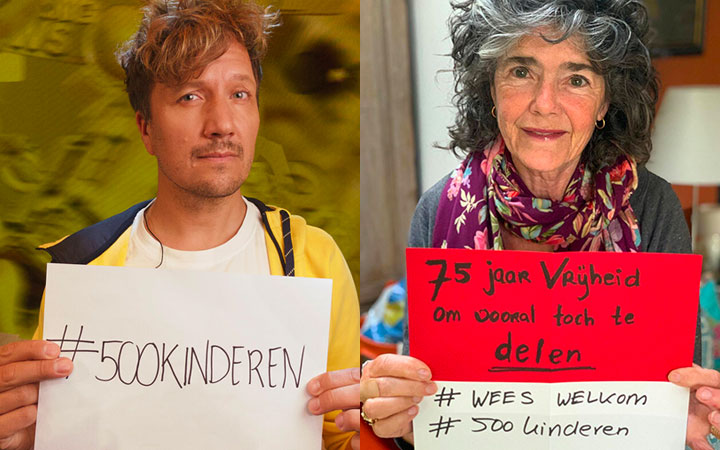 #500KINDEREN
75 jaar Vrijheid
om vooral toch te
delen
# WEES WELKOM
# 500 kinderen